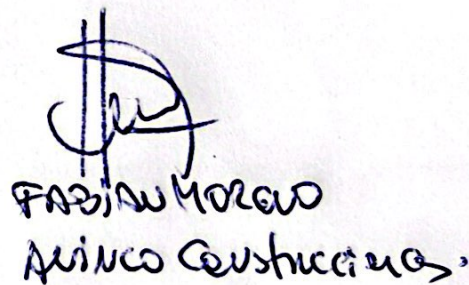 FABIAN MORENO
AVINCO Construcciones.